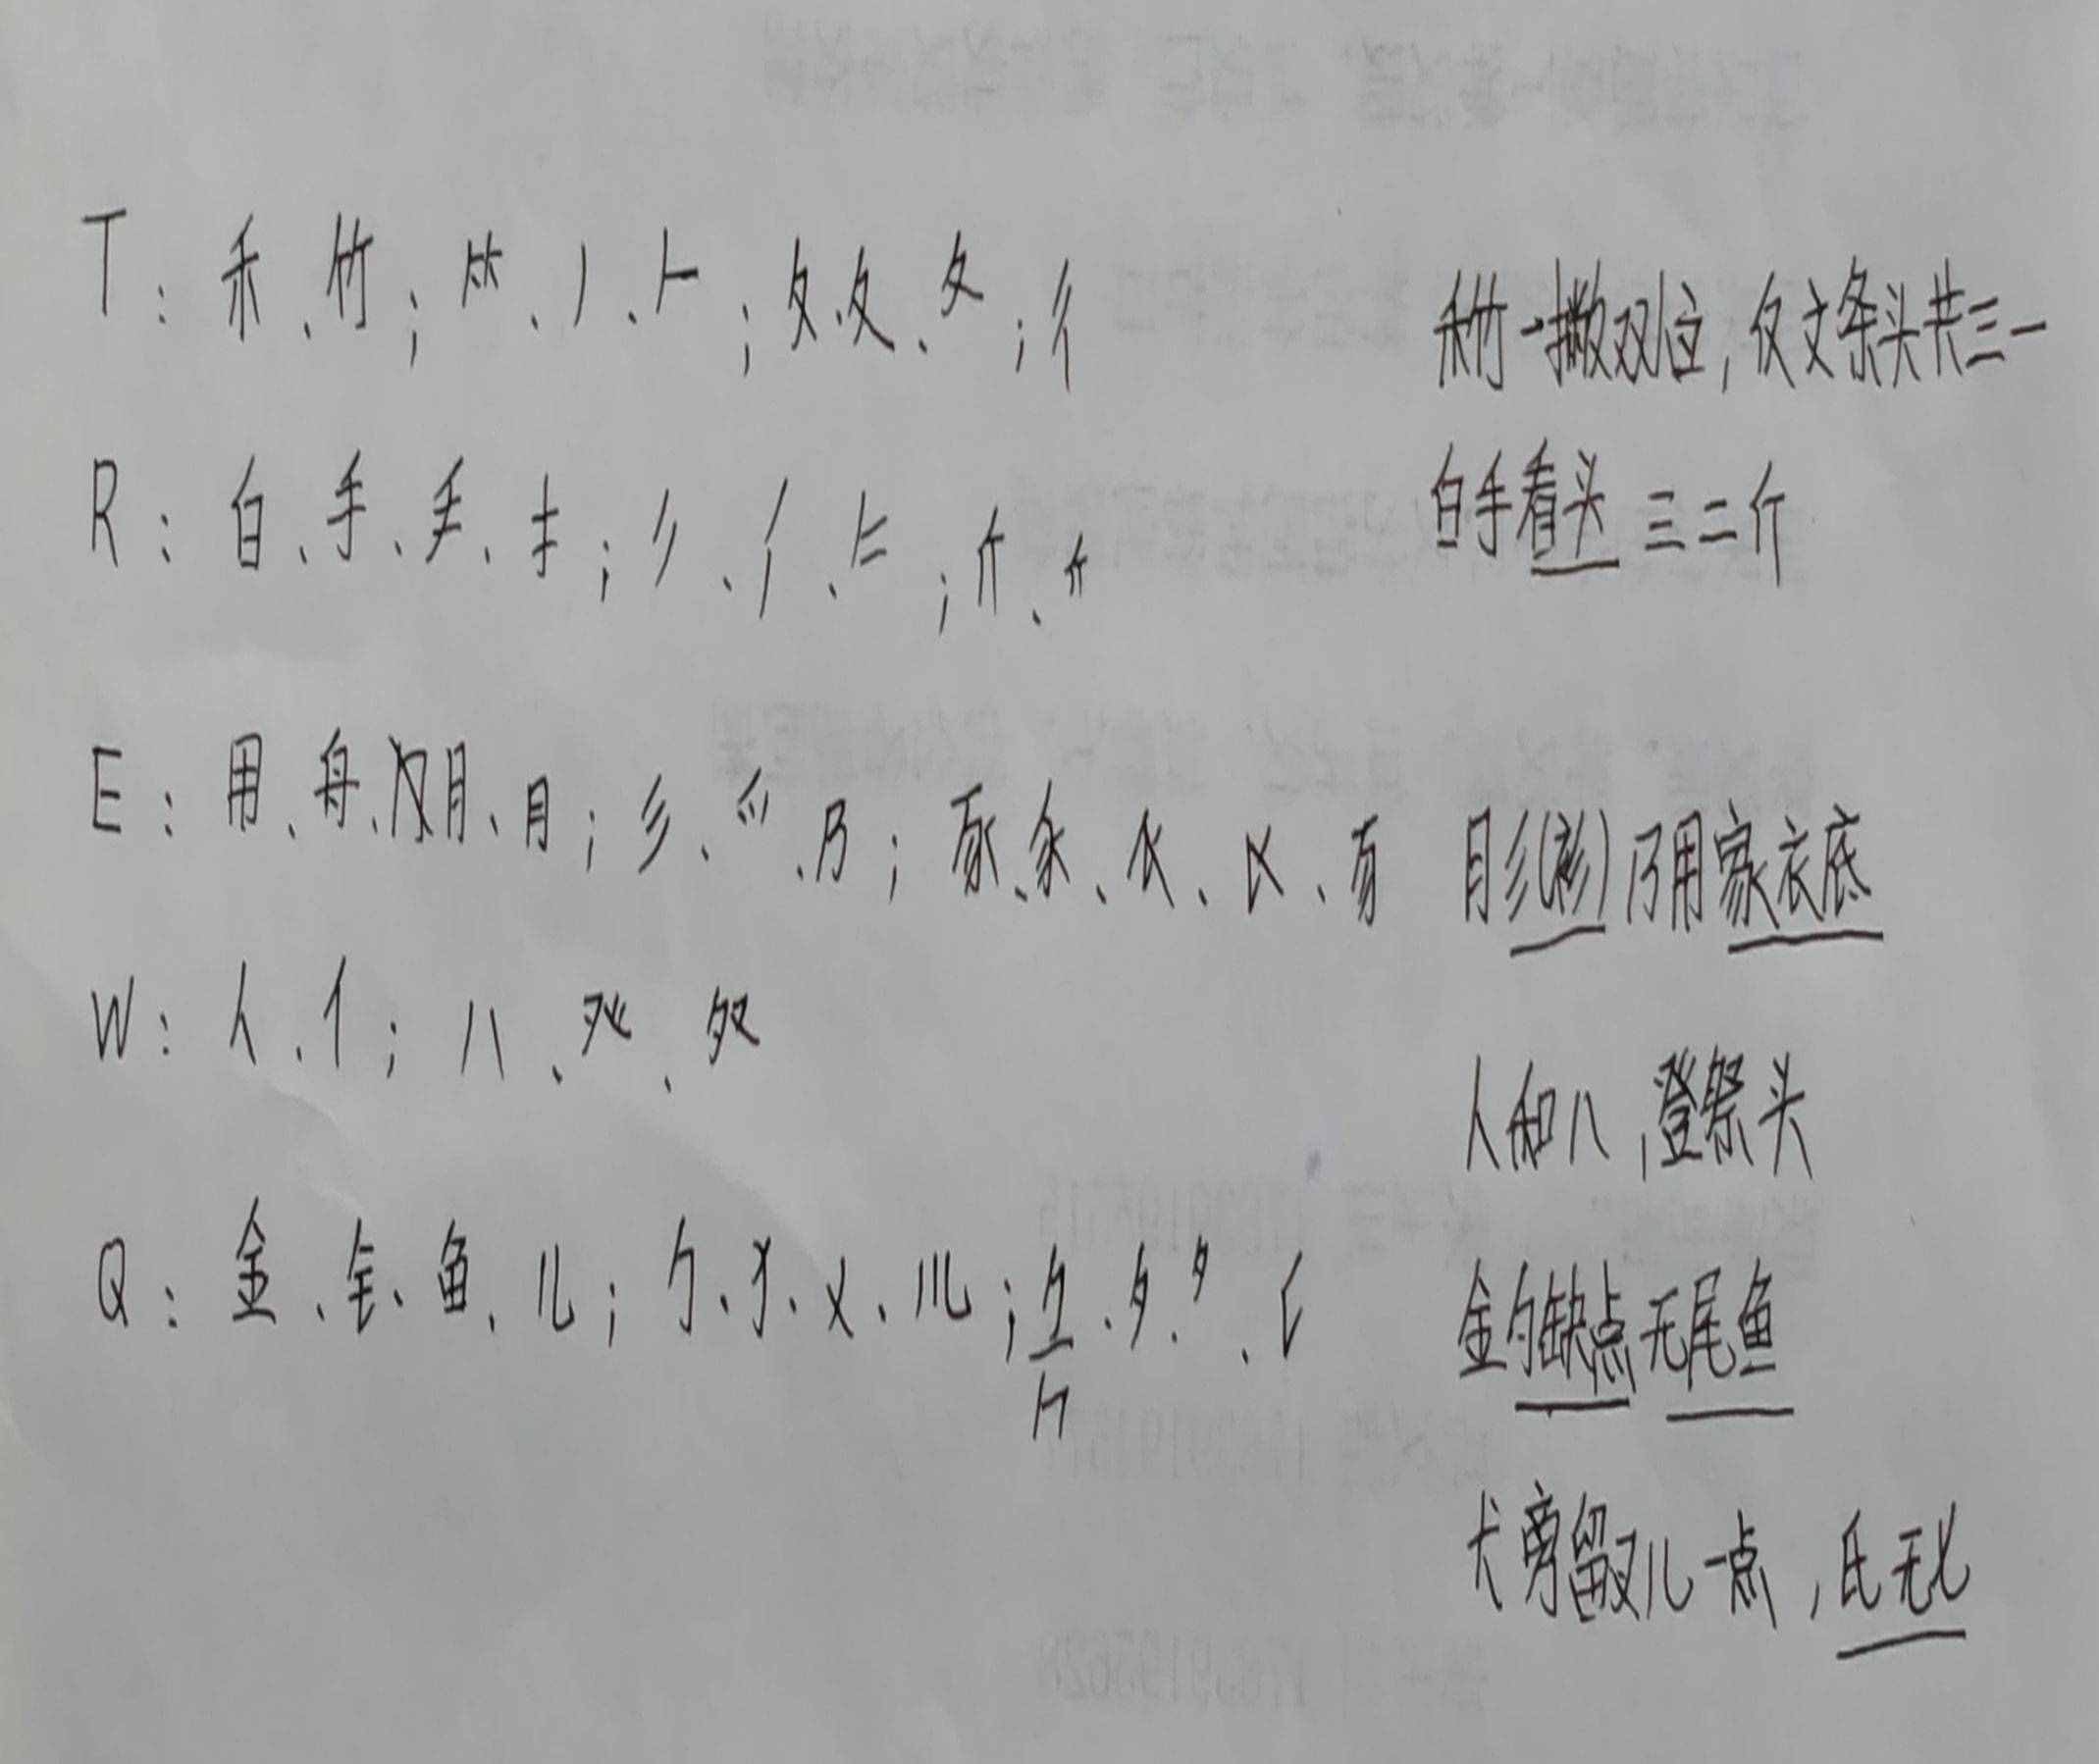 T：禾、竹；⺮、丿、𠂉；攵、夂、夊；彳 禾竹一撇双人立，反文条头共三一
R：白、手、龵、扌；彡、斤 白手看头三二斤
E：用、舟、月、月；彡、爫、乃；豕、𧰨、𧘇 月彡(衫)乃用家衣底
W：人、亻；八、癶 人和八，登祭头
Q：金、钅、鱼、儿；勹、犭、乂、儿；夕 金勺缺点无尾鱼
犬旁留叉儿一点，氏无七